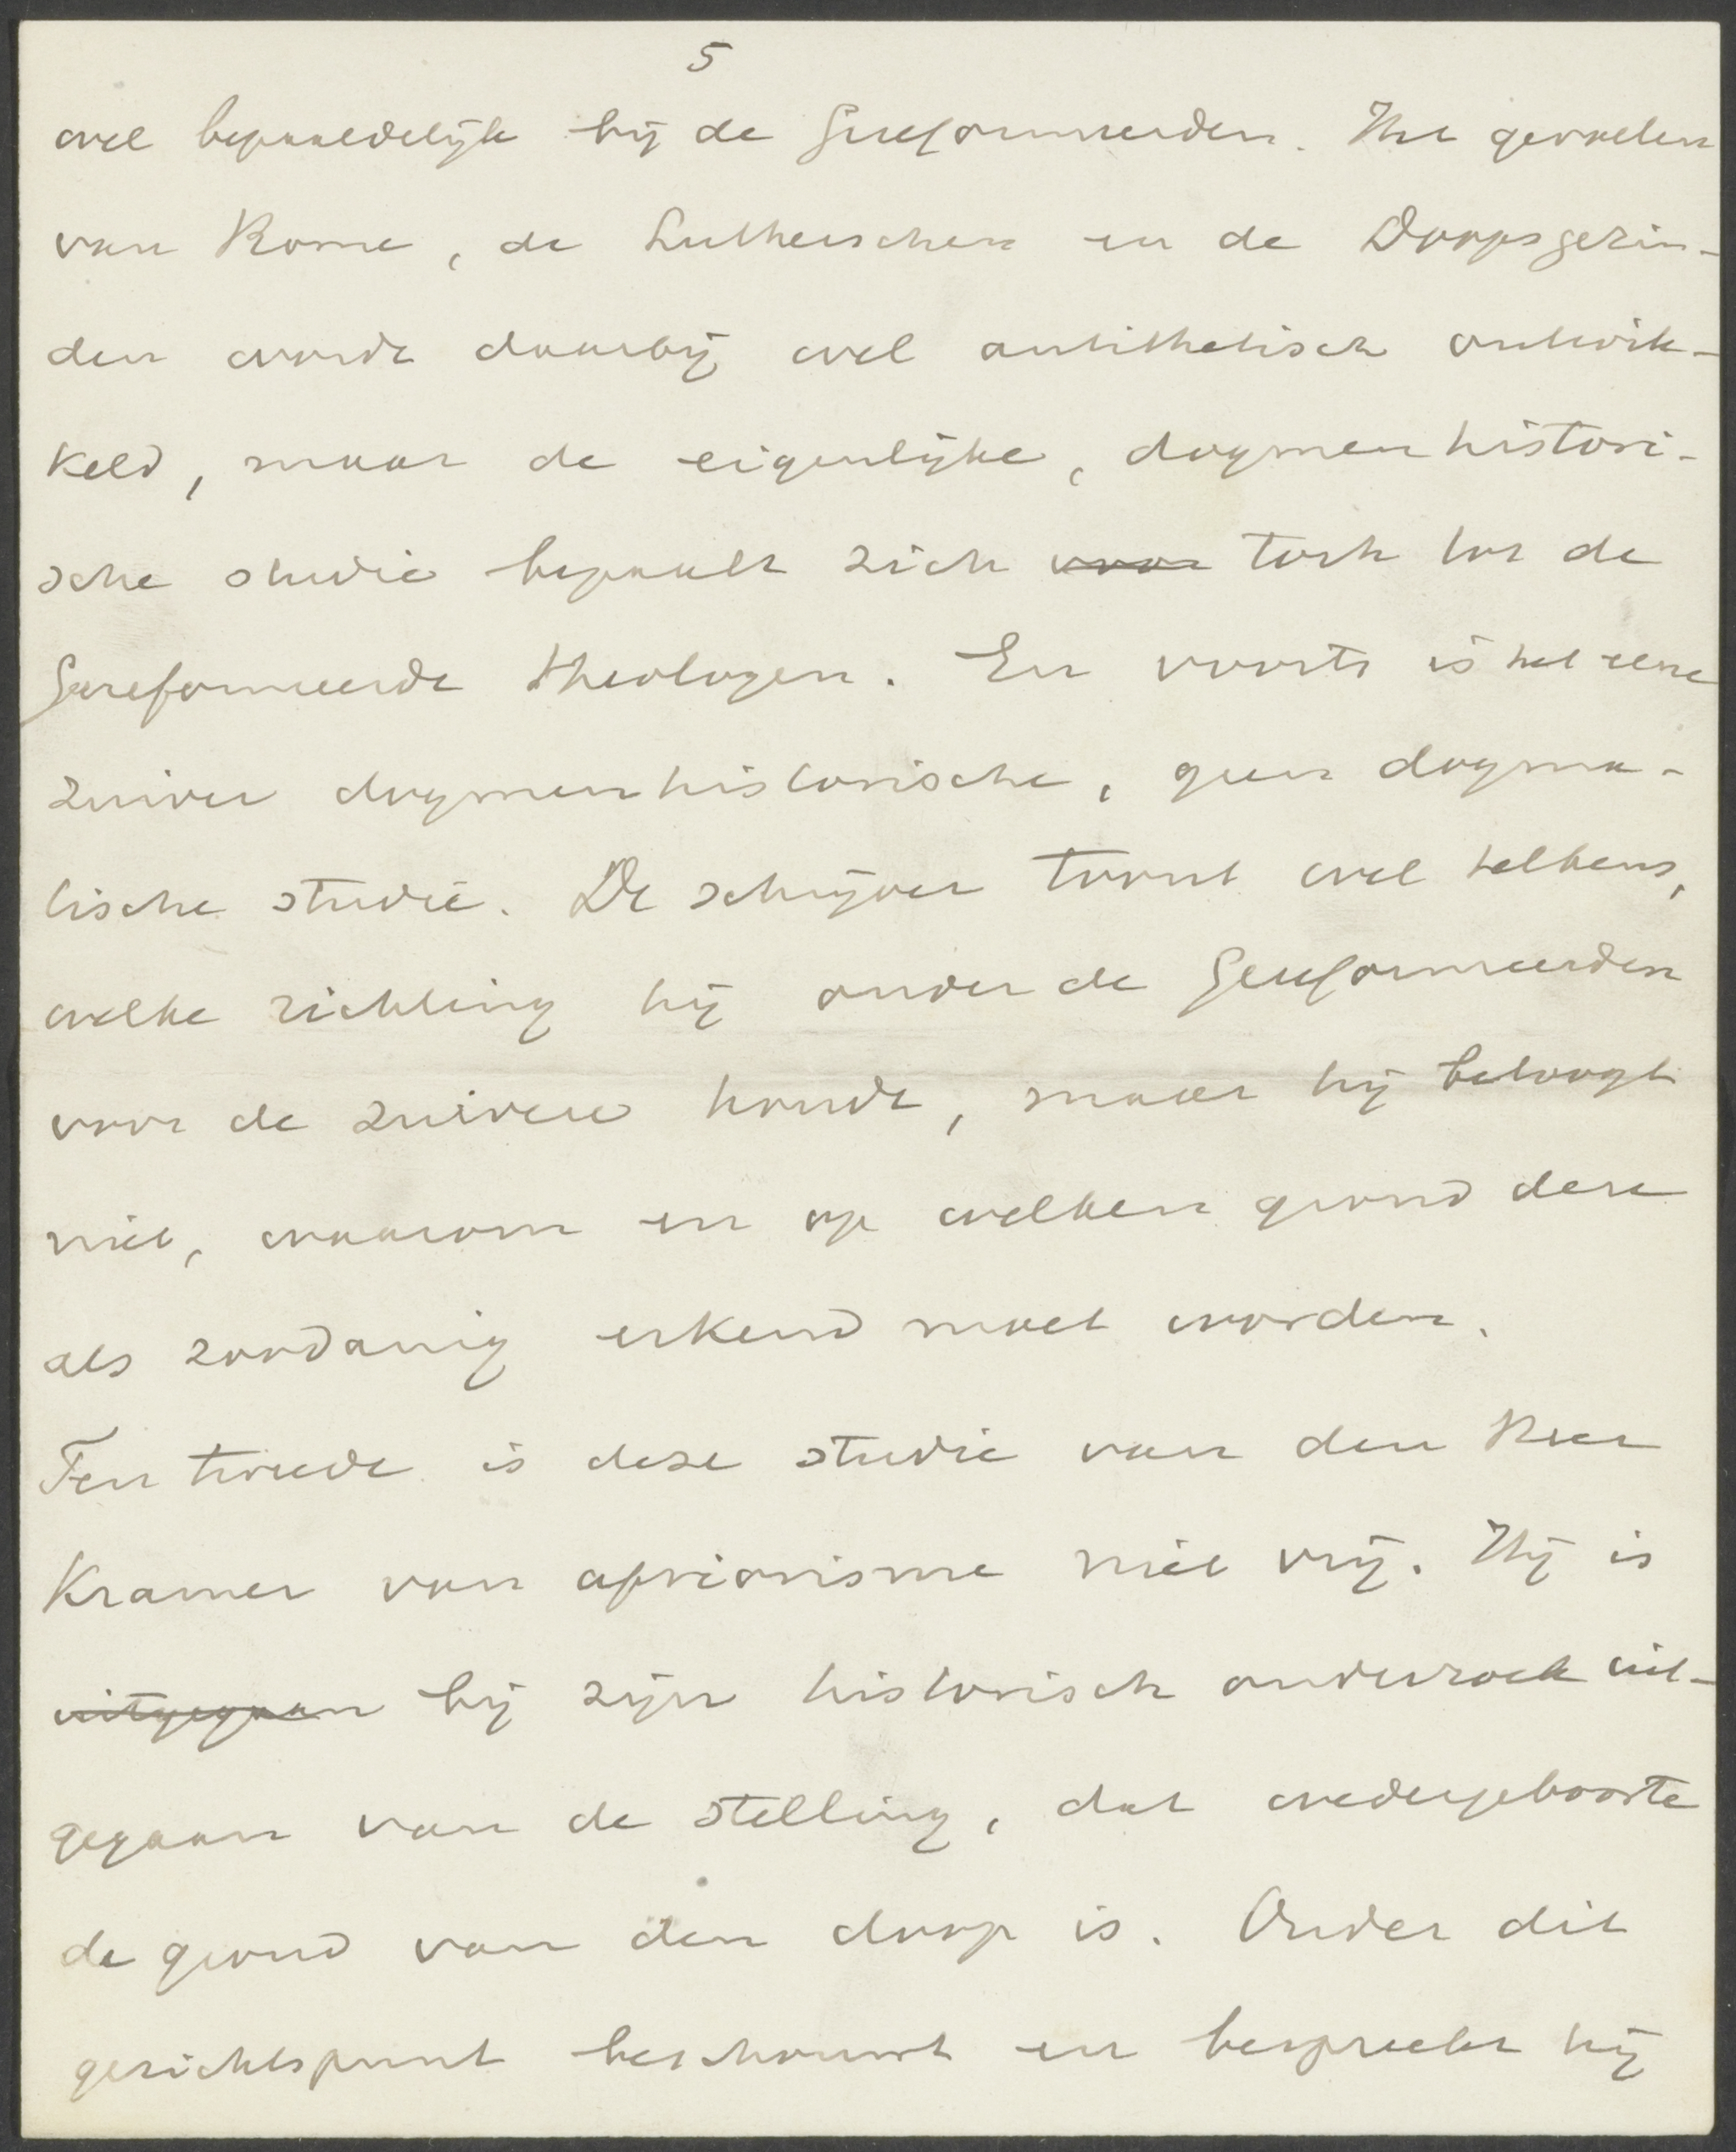 5
wel bepaaldelijk bij de Gereformeerden. Het gevoelen
van Rome, de Lutherschen en de Doopsgezin-
den wordt daarbij wel antithetisch ontwik-
keld, maar de eigenlijke, dogmenhistori-
sche studie bepaalt zich voor toch tot de
Gereformeerde theologen. En voorts is het eene
zuiver dogmenhistorische, geen dogma-
tische studie. De schrijver toont wel telkens,
welke richting hij onder de Gereformeerden
voor de zuivere houdt, maar hij betoogt
niet, waarom en op welken grond deze
als zoodanig erkend moet worden.
Ten tweede is deze studie van den Heer
Kramer van apriorisme niet vrij. Hij is
uitgegaan bij zijn historisch onderzoek uit-
gegaan van de stelling, dat wedergeboorte
de grond van den doop is. Onder dit
gezichtspunt beschouwt en bespreekt hij